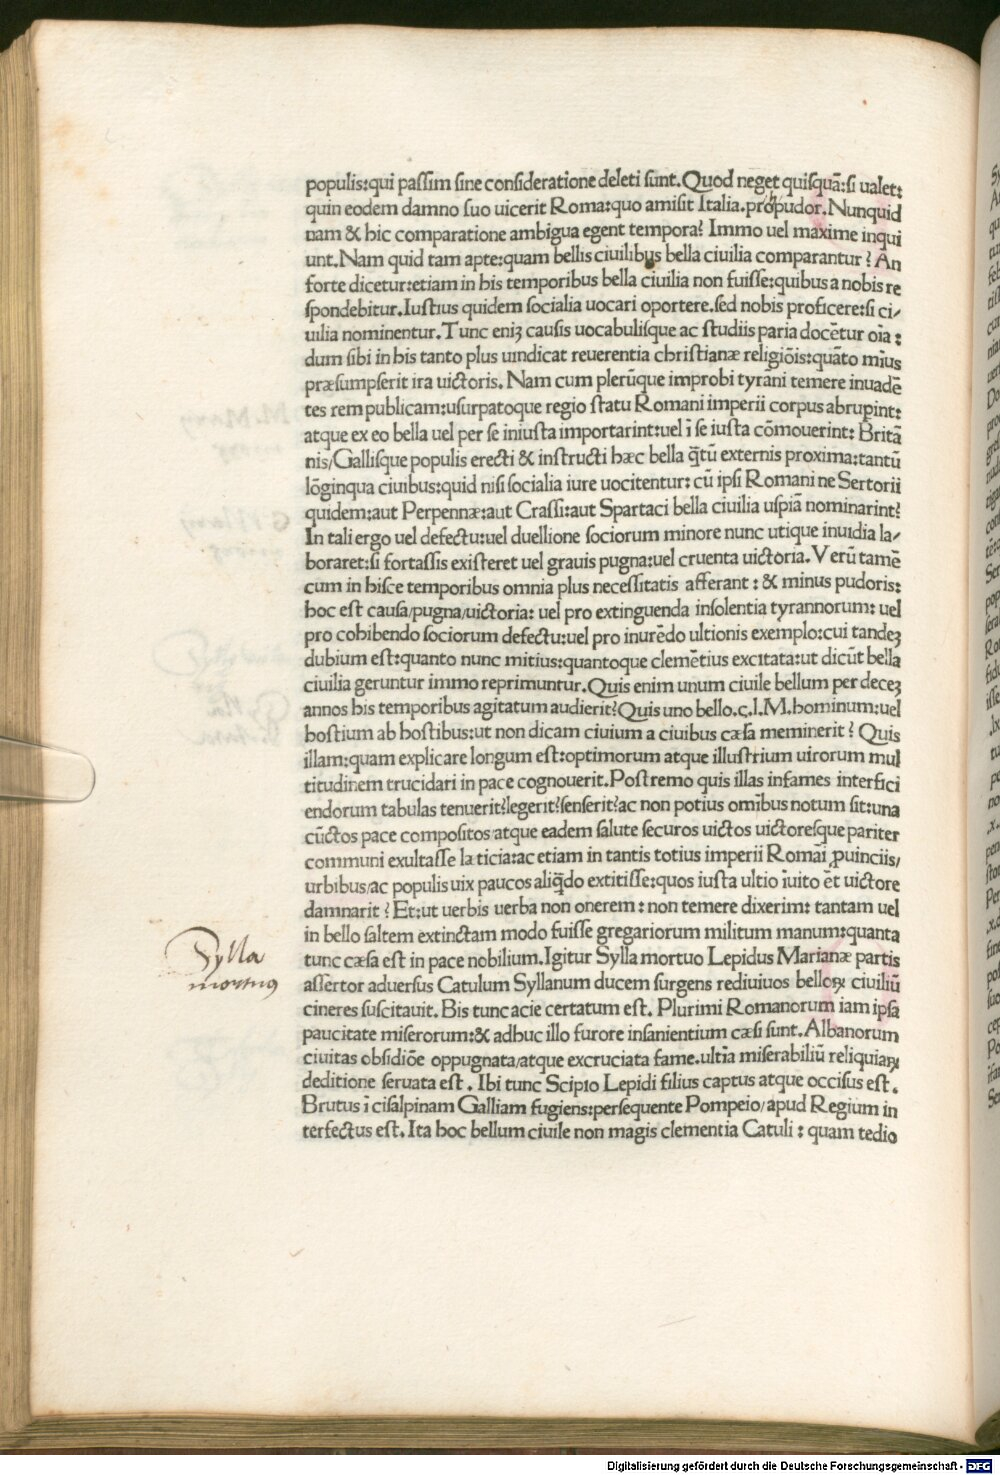 populis:qui paſſim ſine conſideratione deleti ſunt.Quod neget quiſquã:ſi ualet:
quin eodem damno ſuo uicerit Roma:quo amiſit Italia.prohpudor.Nunquid
nam & hic comparatione ambigua egent tempora? Immo uel maxime inqui
unt.Nam quid tam apte:quam bellis ciuilibus bella ciuilia comparantur? An
forte dicetur:etiam in his temporibus bella ciuilia non fuiſſe:quibus a nobis re
ſpondebitur.Iuſtius quidem ſocialia uocari oportere.ſed nobis proficere:ſi ci/
uilia nominentur.Tunc eniꝫ cauſis uocabuliſque ac ſtudiis paria docẽtur oĩa:
dum ſibi in his tanto plus uindicat reuerentia chriſtianæ religiõis:quãto mĩus
præſumpſerit ira uictoris.Nam cum plerũque improbi tyrãni temere inuadẽ
tes rem publicam:uſurpatoque regio ſtatu Romani imperii corpus abrupint:
atque ex eo bella uel per ſe iniuſta importarint:uel ĩ ſe iuſta cõmouerint: Britã
nis/Galliſque populis erecti & inſtructi hæc bella q̃tũ externis proxima:tantũ
lõginqua ciuibus:quid niſi ſocialia iure uocitentur: cũ ipſi Romani ne Sertorii
quidem:aut Perpennæ:aut Craſſi:aut Spartaci bella ciuilia uſpiã nominarint?
In tali ergo uel defectu:uel duellione ſociorum minore nunc utique inuidia la/
boraret:ſi fortaſſis exiſteret uel grauis pugna:uel cruenta uictoria.Verũ tamẽ
cum in hiſce temporibus omnia plus neceſſitatis afferant: & minus pudoris:
hoc eſt cauſa/pugna/uictoria: uel pro extinguenda inſolentia tyrannorum: uel
pro cohibendo ſociorum defectu:uel pro inurẽdo ultionis exemplo:cui tandeꝫ
dubium eſt:quanto nunc mitius:quantoque clemẽtius excitata:ut dicũt bella
ciuilia geruntur immo reprimuntur.Quis enim unum ciuile bellum per deceꝫ
annos his temporibus agitatum audierit?Quis uno bello.c.l.M.hominum:uel
hoſtium ab hoſtibus:ut non dicam ciuium a ciuibus cæſa meminerit? Quis
illam:quam explicare longum eſt:optimorum atque illuſtrium uirorum mul
titudinem trucidari in pace cognouerit.Poſtremo quis illas infames interfici
endorum tabulas tenuerit?legerit?ſenſerit?ac non potius omĩbus notum ſit:una
cũctos pace compoſitos/atque eadem ſalute ſecuros uictos uictoreſque pariter
communi exultaſſe læticia:ac etiam in tantis totius imperii Romãi ꝓuinciis/
urbibus/ac populis uix paucos aliq̃do extitiſſe:quos iuſta ultio ĩuito ẽt uictore
damnarit? Et:ut uerbis uerba non onerem: non temere dixerim: tantam uel
in bello ſaltem extinctam modo fuiſſe gregariorum militum manum:quanta
tunc cæſa eſt in pace nobilium.Igitur Sylla mortuo Lepidus Marianæ partis
aſſertor aduerſus Catulum Syllanum ducem ſurgens rediuiuos belloꝝ ciuiliũ
cineres ſuſcitauit. Bis tunc acie certatum eſt. Plurimi Romanorum iam ipſa
paucitate miſerorum:& adhuc illo furore inſanientium cæſi ſunt. Albanorum
ciuitas obſidiõe oppugnata/atque excruciata fame.ultĩa miſerabiliũ reliquiaꝝ
deditione ſeruata eſt. Ibi tunc Scipio Lepidi filius captus atque occiſus eſt.
Brutus ĩ ciſalpinam Galliam fugiens:perſequente Pompeio/apud Regium in
terfectus eſt. Ita hoc bellum ciuile non magis clementia Catuli: quam tedio
Sylla
mortuus
Digitalisierung gefördert durch die Deutsche Forschungsgemeinschaft - DFG